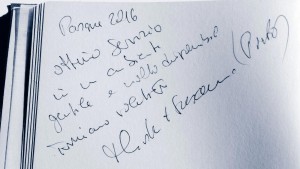 Pasqua 2016
ottimo servizio
in un ambiente
gentile e molto disponibile
torniamo volentieri
(Prato)